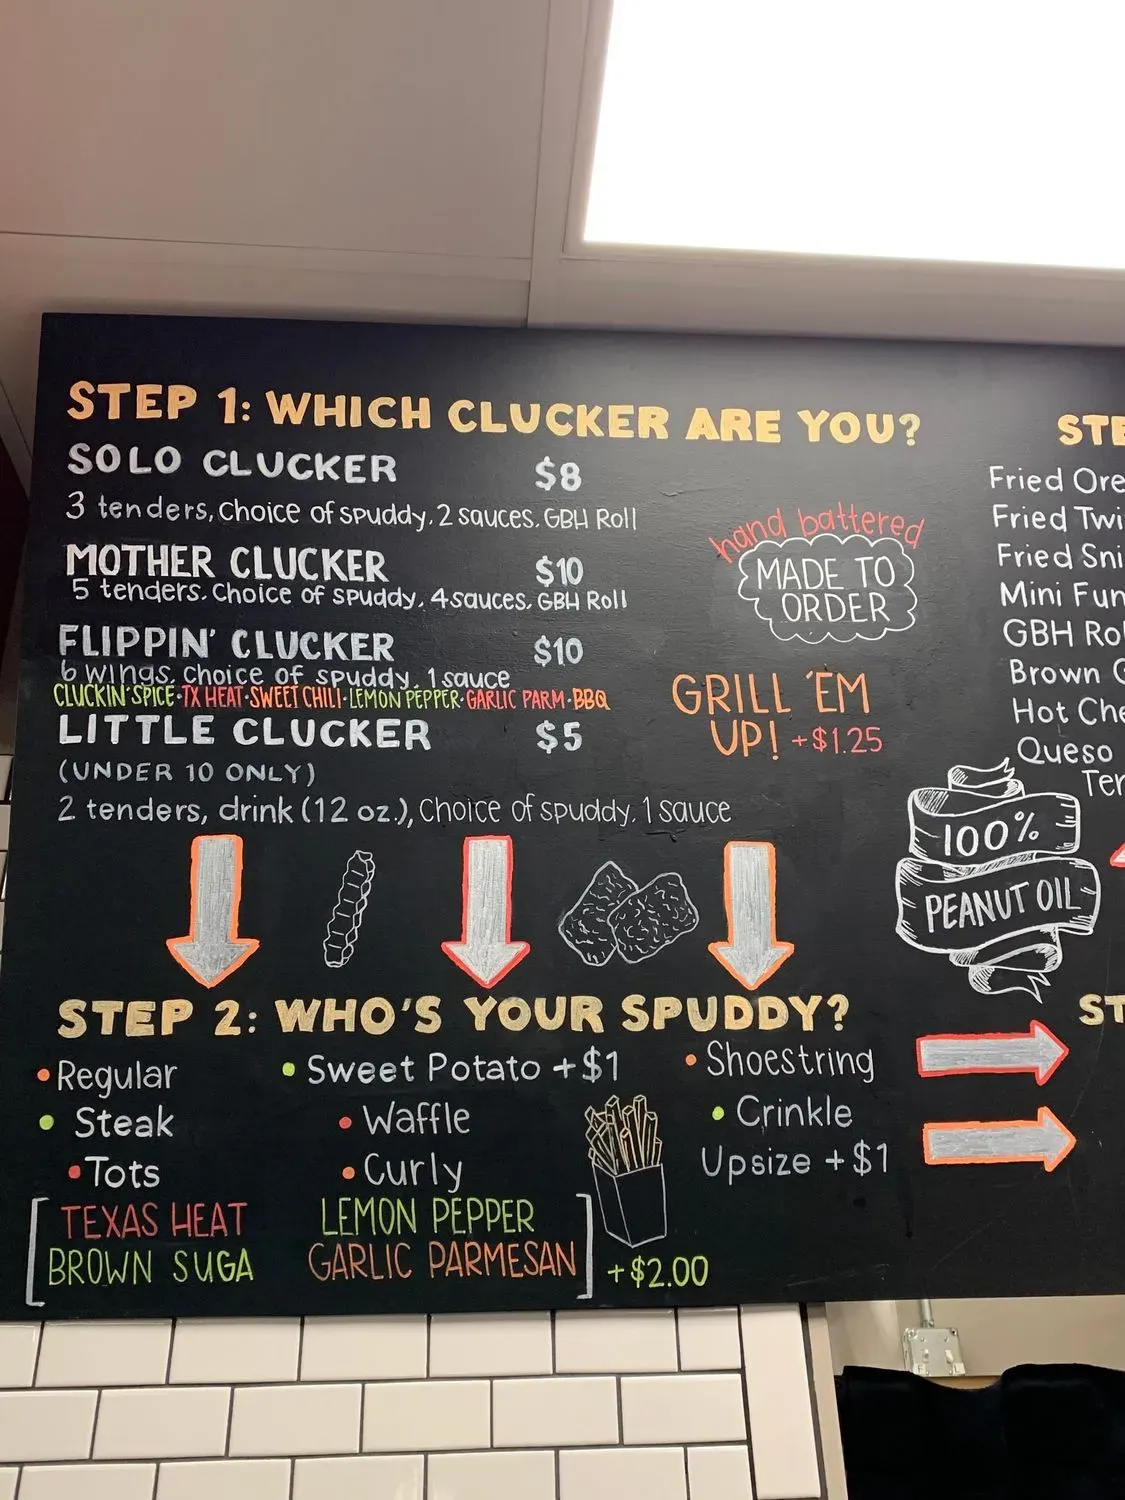 STEP 1: WHICH CLUCKER ARE YOU?
SOLO CLUCKER $8
3 tenders, choice of spuddy, 2 sauces, GBH Roll
MOTHER CLUCKER $10
5 tenders, choice of spuddy, 4 sauces, GBH Roll
FLIPPIN' CLUCKER $10
6 wings, choice of spuddy, 1 sauce
CLUCKIN' SPICE · TX HEAT · SWEET CHILI · LEMON PEPPER · GARLIC PARM · BBQ
LITTLE CLUCKER $5
(UNDER 10 ONLY)
2 tenders, drink (12 oz.), choice of spuddy, 1 sauce
hand battered
MADE TO
ORDER
GRILL 'EM
UP! +$1.25
Fried
Fried
Fried
Mini
GBH
Brown
Hot
Queso
100%
PEANUT OIL
STEP 2: WHO'S YOUR SPUDDY?
• Regular • Sweet Potato +$1 • Shoestring
• Steak • Waffle • Crinkle
• Tots • Curly Upsize +$1
[TEXAS HEAT LEMON PEPPER
BROWN SUGA GARLIC PARMESAN] +$2.00